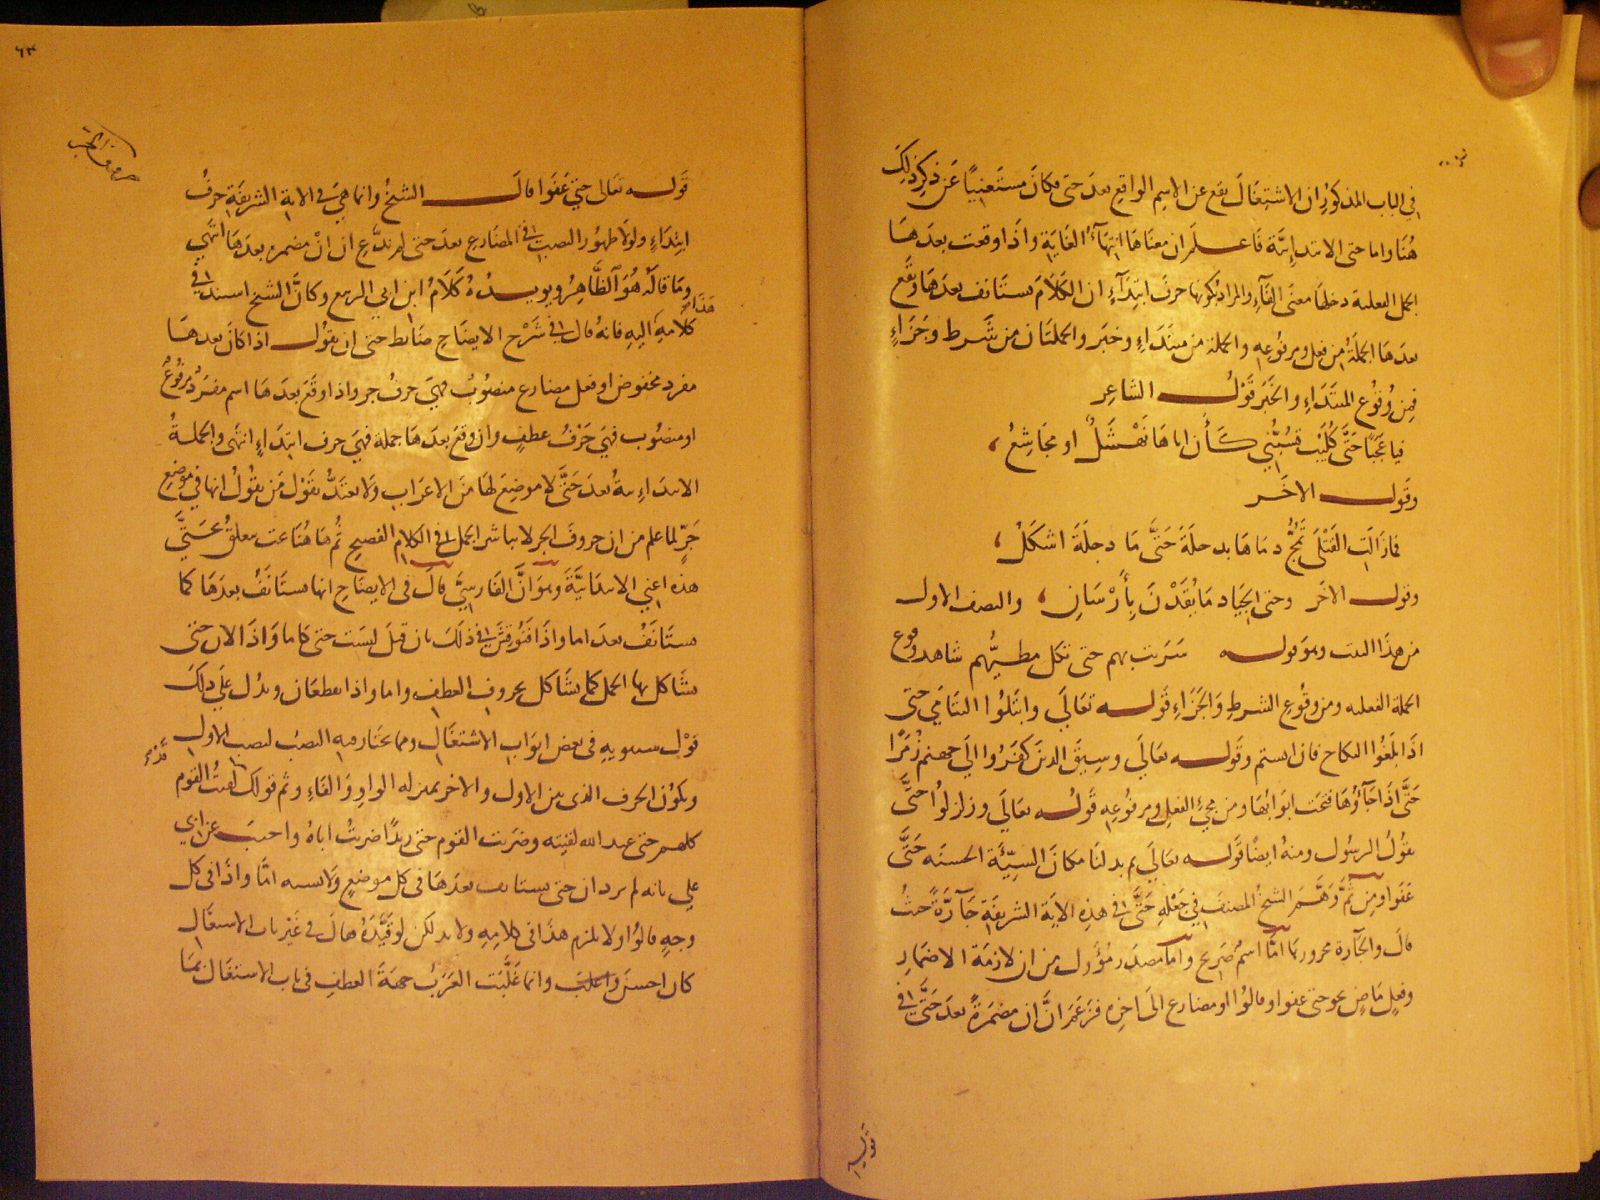 في الباب المذكور ان الاشتغال يقع عن الاسم الواقع بعد حتى فكان مستغنيًا عن ذكر ذلك
هنا واما حتى الابتدائية فاعلم ان معناها انتهاء الغاية واذا وقعت بعدها
الجمل الفعلية دخلها معنى الفاء والمراد بكونها حرف ابتداء ان الكلام يستانف بعدها وتقع
بعدها الجملة من فعل ومرفوعه والجملة من مبتداء وخبر والجملتان من شرط وجزاء
فمن وقوع المبتداء والخبر قول الشاعر
فيا عجبًا حتى كليب تسبني كأن اباها نهشل او مجاشع
وقول الاخر
فما زالت القتلى تمج دماها بدجلة حتى ما دجلة اشكل
وقول الاخر وحتى الجياد ما يقدن بأرسان والنصف الاول
من هذا البيت وهو قوله سريت بهم حتى تكل مطيهم شاهد وقوع
الجملة الفعليه ومن وقوع الشرط والجزاء قوله تعالى وابتلوا اليتامى حتى
اذا بلغوا النكاح فان انستم وقوله تعالى وسيق الذين كفروا الى جهنم زمرا
حتى اذا جاؤها فتحت ابوابها ومن مجئ الفعل ومرفوعه قوله تعالى وزلزلوا حتى
يقول الرسول ومنه ايضا قوله تعالى ثم بدلنا مكان السيئة الحسنه حتى
عفوا ومن ثم وهم الشيخ المصنف في جعله حتى في هذه الاية الشريفة جارة حيث
قال والجارة مجرورها اما اسم صريح واما مصدر مؤول من ان لازمة الاضمار
وفعل ماض نحو حتى عفوا وقالوا او مضارع الى اخره فزعم ان ان مضمرة بعد حتى في
قوله
٦٣
قوله تعالى حتى عفوا قال الشيخ وانما هي في الاية الشريفة حرف
ابتداء ولولا ظهور النصب في المضارع بعد حتى لم ندع ان ان مضمره بعدها انتهى
وما قاله هو الظاهر ويويده كلام ابن ابي الربيع وكان الشيخ استند في
هذا
كلامه اليه فانه قال في شرح الايضاح ضابط حتى ان يقول اذا كان بعدها
مفرد مخفوض او فعل مضارع منصوب فهي حرف جر واذا وقع بعدها اسم مفرد مرفوع
او منصوب فهي حرف عطف وان وقع بعدها جملة فهي حرف ابتداء انتهى والجملة
الابتدائية بعد حتى لا موضع لها من الاعراب ولا يعتد بقول من يقول انها في موضع
جر لما علم من ان حروف الجر لا تباشر الجمل في الكلام الفصيح ثم هاهنا بحث معلق بحتى
هذه اعني الابتدائية وهو ان الفارسي قال في الايضاح انها مستانف بعدها كما
يستانف بعد اما واذا فنوقش في ذلك بان قيل ليست حتى كاما واذا لان حتى
يشاكل بها الجمل كما يشاكل بحروف العطف واما واذا يقطعان ويدل على ذلك
قول سيبويه في بعض ابواب الاشتغال ومما يختار فيه النصب لنصب الاول
ويكون الحرف الذي بين الاول والاخر بمنزله الواو والفاء وثم قولك لقيت القوم
كلهم حتى عبد الله لقيته وضربت القوم حتى زيدًا ضربت اباه واجيب عن ابي
علي بانه لم يرد ان حتى يستانف بعدها في كل موضع ولا تشبه امّا واذا في كل
وجه قالوا ولا يلزم هذا في كلامه ولا بد لكن لو قيده فقال في غير باب الاشتغال
كان احسن وانما غلبت العرب جهة العطف في باب الاشتغال بما